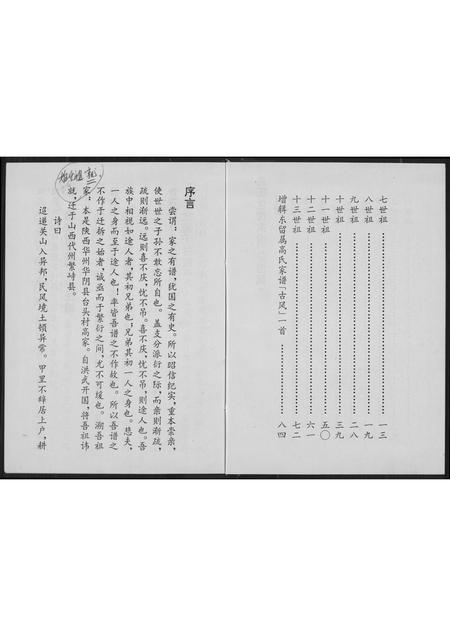 七世祖……………………一三
八世祖……………………一九
九世祖……………………二八
十世祖……………………三九
十一世祖……………………五〇
十二世祖……………………六一
十三世祖……………………七二
增辑东留属高氏家谱「古风」一首……………………八四
序言
尝谓：家之有谱，犹国之有史。所以昭信纪实，重本崇亲，
使世世之子孙不敢忘所自也。盖支分派衍之际，而亲则渐疏，
疏则渐远。远则喜不庆，忧不吊。喜不庆，忧不吊，则途人也。吾
族中相视如途人者，其初兄弟也；兄弟其初一人之身也。悲夫，
一人之身而至于途人也！率皆吾谱之不作故也。所以吾谱之
不作于迁拆之始者，诚亟而于繁衍之间，尤不可缓也。溯吾祖
家：本是陕西华州华阴县台头村高家。自洪武开国，将吾祖讳
就，迁于山西代州繁峙县。
诗曰
迢递关山入异邦，民风境土顿异常。甲里不辞居上户，耕